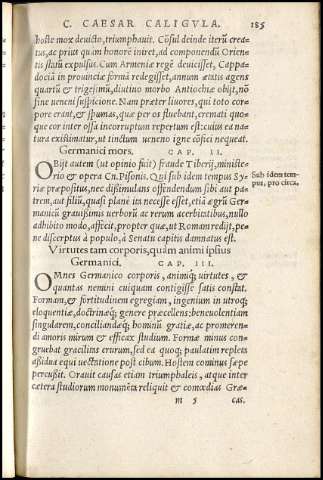 C. CAESAR CALIGVLA. 185
hoste mox deuicto, triumphauit. Cōsul deinde iterū crea-
tus, ac prius quam honorē iniret, ad componendū Orien-
tis statū expulsus. Cum Armeniæ regē deuicisset, Cappa-
dociā in prouinciæ formā redegisset, annum ætatis agens
quartū & trigesimū, diutino morbo Antiochiæ obijt, nō
sine ueneni suspicione. Nam præter liuores, qui toto cor-
pore erant, & spumas, quæ per os fluebant, cremati quo-
que cor inter ossa incorruptum repertum est: cuius ea na-
tura existimatur, ut tinctum ueneno igne cōfici nequeat.
Germanici mors. CAP. II.
OBijt autem (ut opinio fuit) fraude Tiberij, ministe-
rio & opera Cn. Pisonis. Qui sub idem tempus Sy-
riæ præpositus, nec dißimulans offendendum sibi aut pa-
trem, aut filiū, quasi plane ita necesse esset, etiā ægrū Ger
manicū grauißimis uerborū ac rerum acerbitatibus, nullo
adhibito modo, affecit, propter quæ, ut Romam redijt, pe-
ne discerptus à populo, à Senatu capitis damnatus est.
Sub idem tem-
pus, pro circa.
Virtutes tam corporis, quàm animi ipsius
Germanici. CAP. III.
OMnes Germanico corporis, animiq; uirtutes, &
quantas nemini cuiquam contigisse satis constat.
Formam, & fortitudinem egregiam, ingenium in utroq;
eloquentiæ, doctrinæq; genere præcellens; beneuolentiam
singularem, conciliandæq; hominū gratiæ, ac promeren-
di amoris mirum & efficax studium. Formæ minus con-
gruebat gracilitas crurum, sed ea quoq; paulatim repleta
aßidua equi uectatione post cibum. Hostem cominus sæpe
percußit. Orauit causas etiam triumphales, atque inter
cætera studiorum monumēta reliquit & comœdias Græ-
m 5 cas.